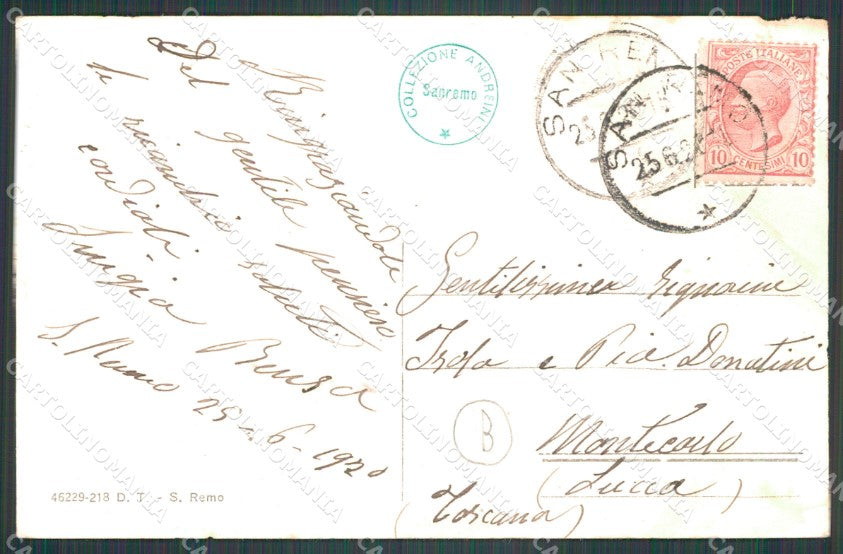 Ringraziandole
Del gentile pensiero
le ricambio saluti
cordiali
Luigia Bensa
S. Remo 25-6-1920
46229-218 D. T. - S. Remo
COLLEZIONE ANDREINI
Sanremo
SAN REMO
25
SAN REMO
25.6.2
POSTE ITALIANE
10 CENTESIMI 10
Gentilissime Signorine
Isola e Pia Donatini
B
Montecarlo
(Lucca)
(Toscana)
CARTOLINOMANIA